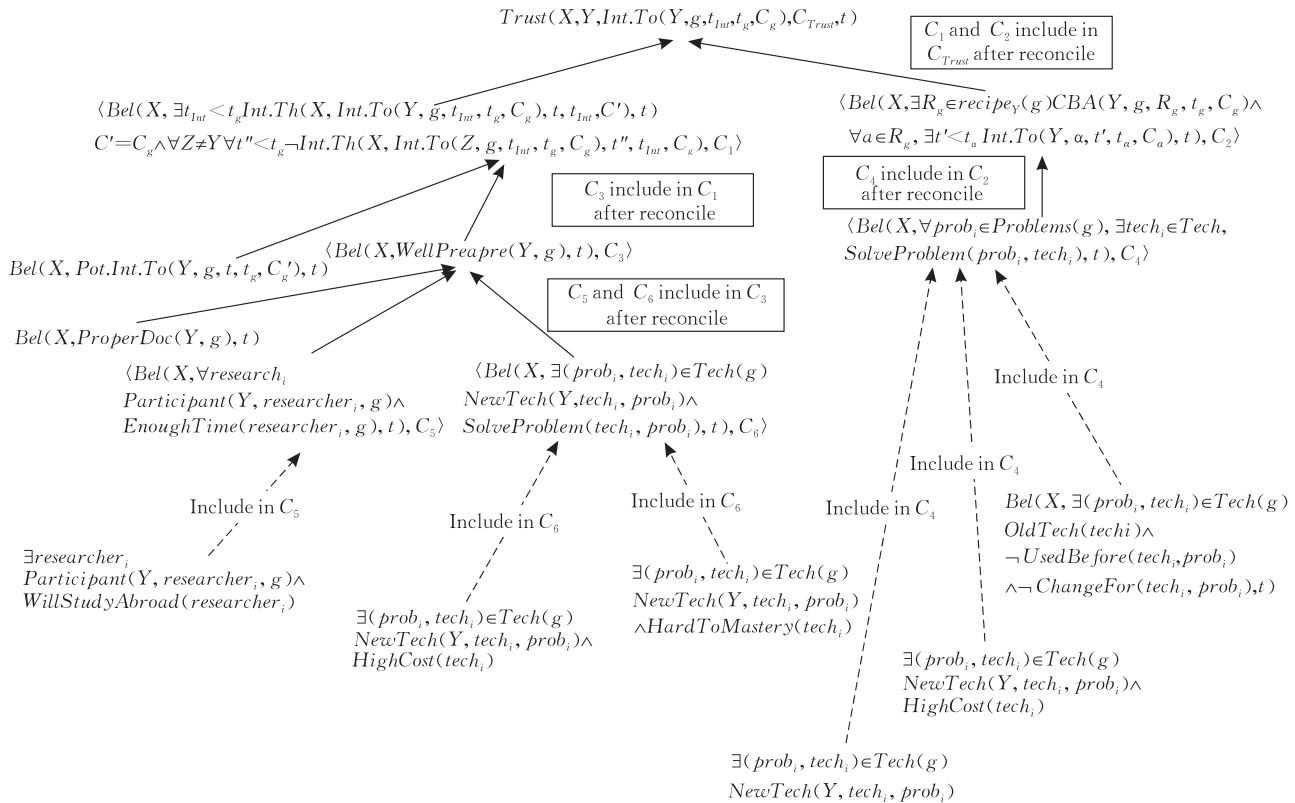 Trust(X,Y,Int.To(Y,g,t_Int,t_g,C_g),C_Trust,t)
C₁ and C₂ include in
C_Trust after reconcile
⟨Bel(X, ∃t_Int<t_g Int.Th(X, Int.To(Y, g, t_Int, t_g, C_g), t, t_Int, C'), t)
C'=C_g∧∀Z≠Y∀t''<t_g¬Int.Th(X, Int.To(Z, g, t_Int, t_g, C_g), t'', t_Int, C_g), C₁⟩
⟨Bel(X,∃R_g∈recipe_Y(g)CBA(Y, g, R_g, t_g, C_g)∧
∀a∈R_g, ∃t'<t_α Int.To(Y, α, t', t_α, C_α), t), C₂⟩
C₃ include in C₁
after reconcile
C₄ include in C₂
after reconcile
Bel(X, Pot.Int.To(Y, g, t, t_g, C_g'), t)
⟨Bel(X,WellPreapre(Y, g), t), C₃⟩
⟨Bel(X,∀prob_i∈Problems(g), ∃tech_i∈Tech,
SolveProblem(prob_i, tech_i), t), C₄⟩
C₅ and C₆ include in C₃
after reconcile
Bel(X,ProperDoc(Y, g), t)
⟨Bel(X,∀research_i
Participant(Y, researcher_i, g)∧
EnoughTime(researcher_i, g), t), C₅⟩
⟨Bel(X, ∃(prob_i, tech_i)∈Tech(g)
NewTech(Y,tech_i, prob_i)∧
SolveProblem(tech_i, prob_i), t), C₆⟩
Include in C₄
Include in C₄
Include in C₄
Include in C₅
Include in C₆
Include in C₆
∃researcher_i
Participant(Y, researcher_i, g)∧
WillStudyAbroad(researcher_i)
∃(prob_i, tech_i)∈Tech(g)
NewTech(Y, tech_i, prob_i)∧
HighCost(tech_i)
∃(prob_i, tech_i)∈Tech(g)
NewTech(Y, tech_i, prob_i)
∧HardToMastery(tech_i)
Bel(X, ∃(prob_i, tech_i)∈Tech(g)
OldTech(techi)∧
¬UsedBefore(tech_i,prob_i)
∧¬ChangeFor(tech_i, prob_i),t)
∃(prob_i, tech_i)∈Tech(g)
NewTech(Y, tech_i, prob_i)∧
HighCost(tech_i)
∃(prob_i, tech_i)∈Tech(g)
NewTech(Y, tech_i, prob_i)